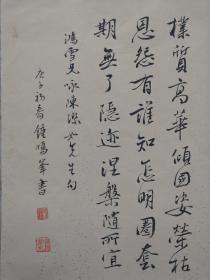 樸質高華傾國姿榮枯
恩怨有誰知怎明圈套
期無了隱迹涅槃隨所宜
鴻雪兄詠陳潔如先生句
庚子初春鍾鳴峯書